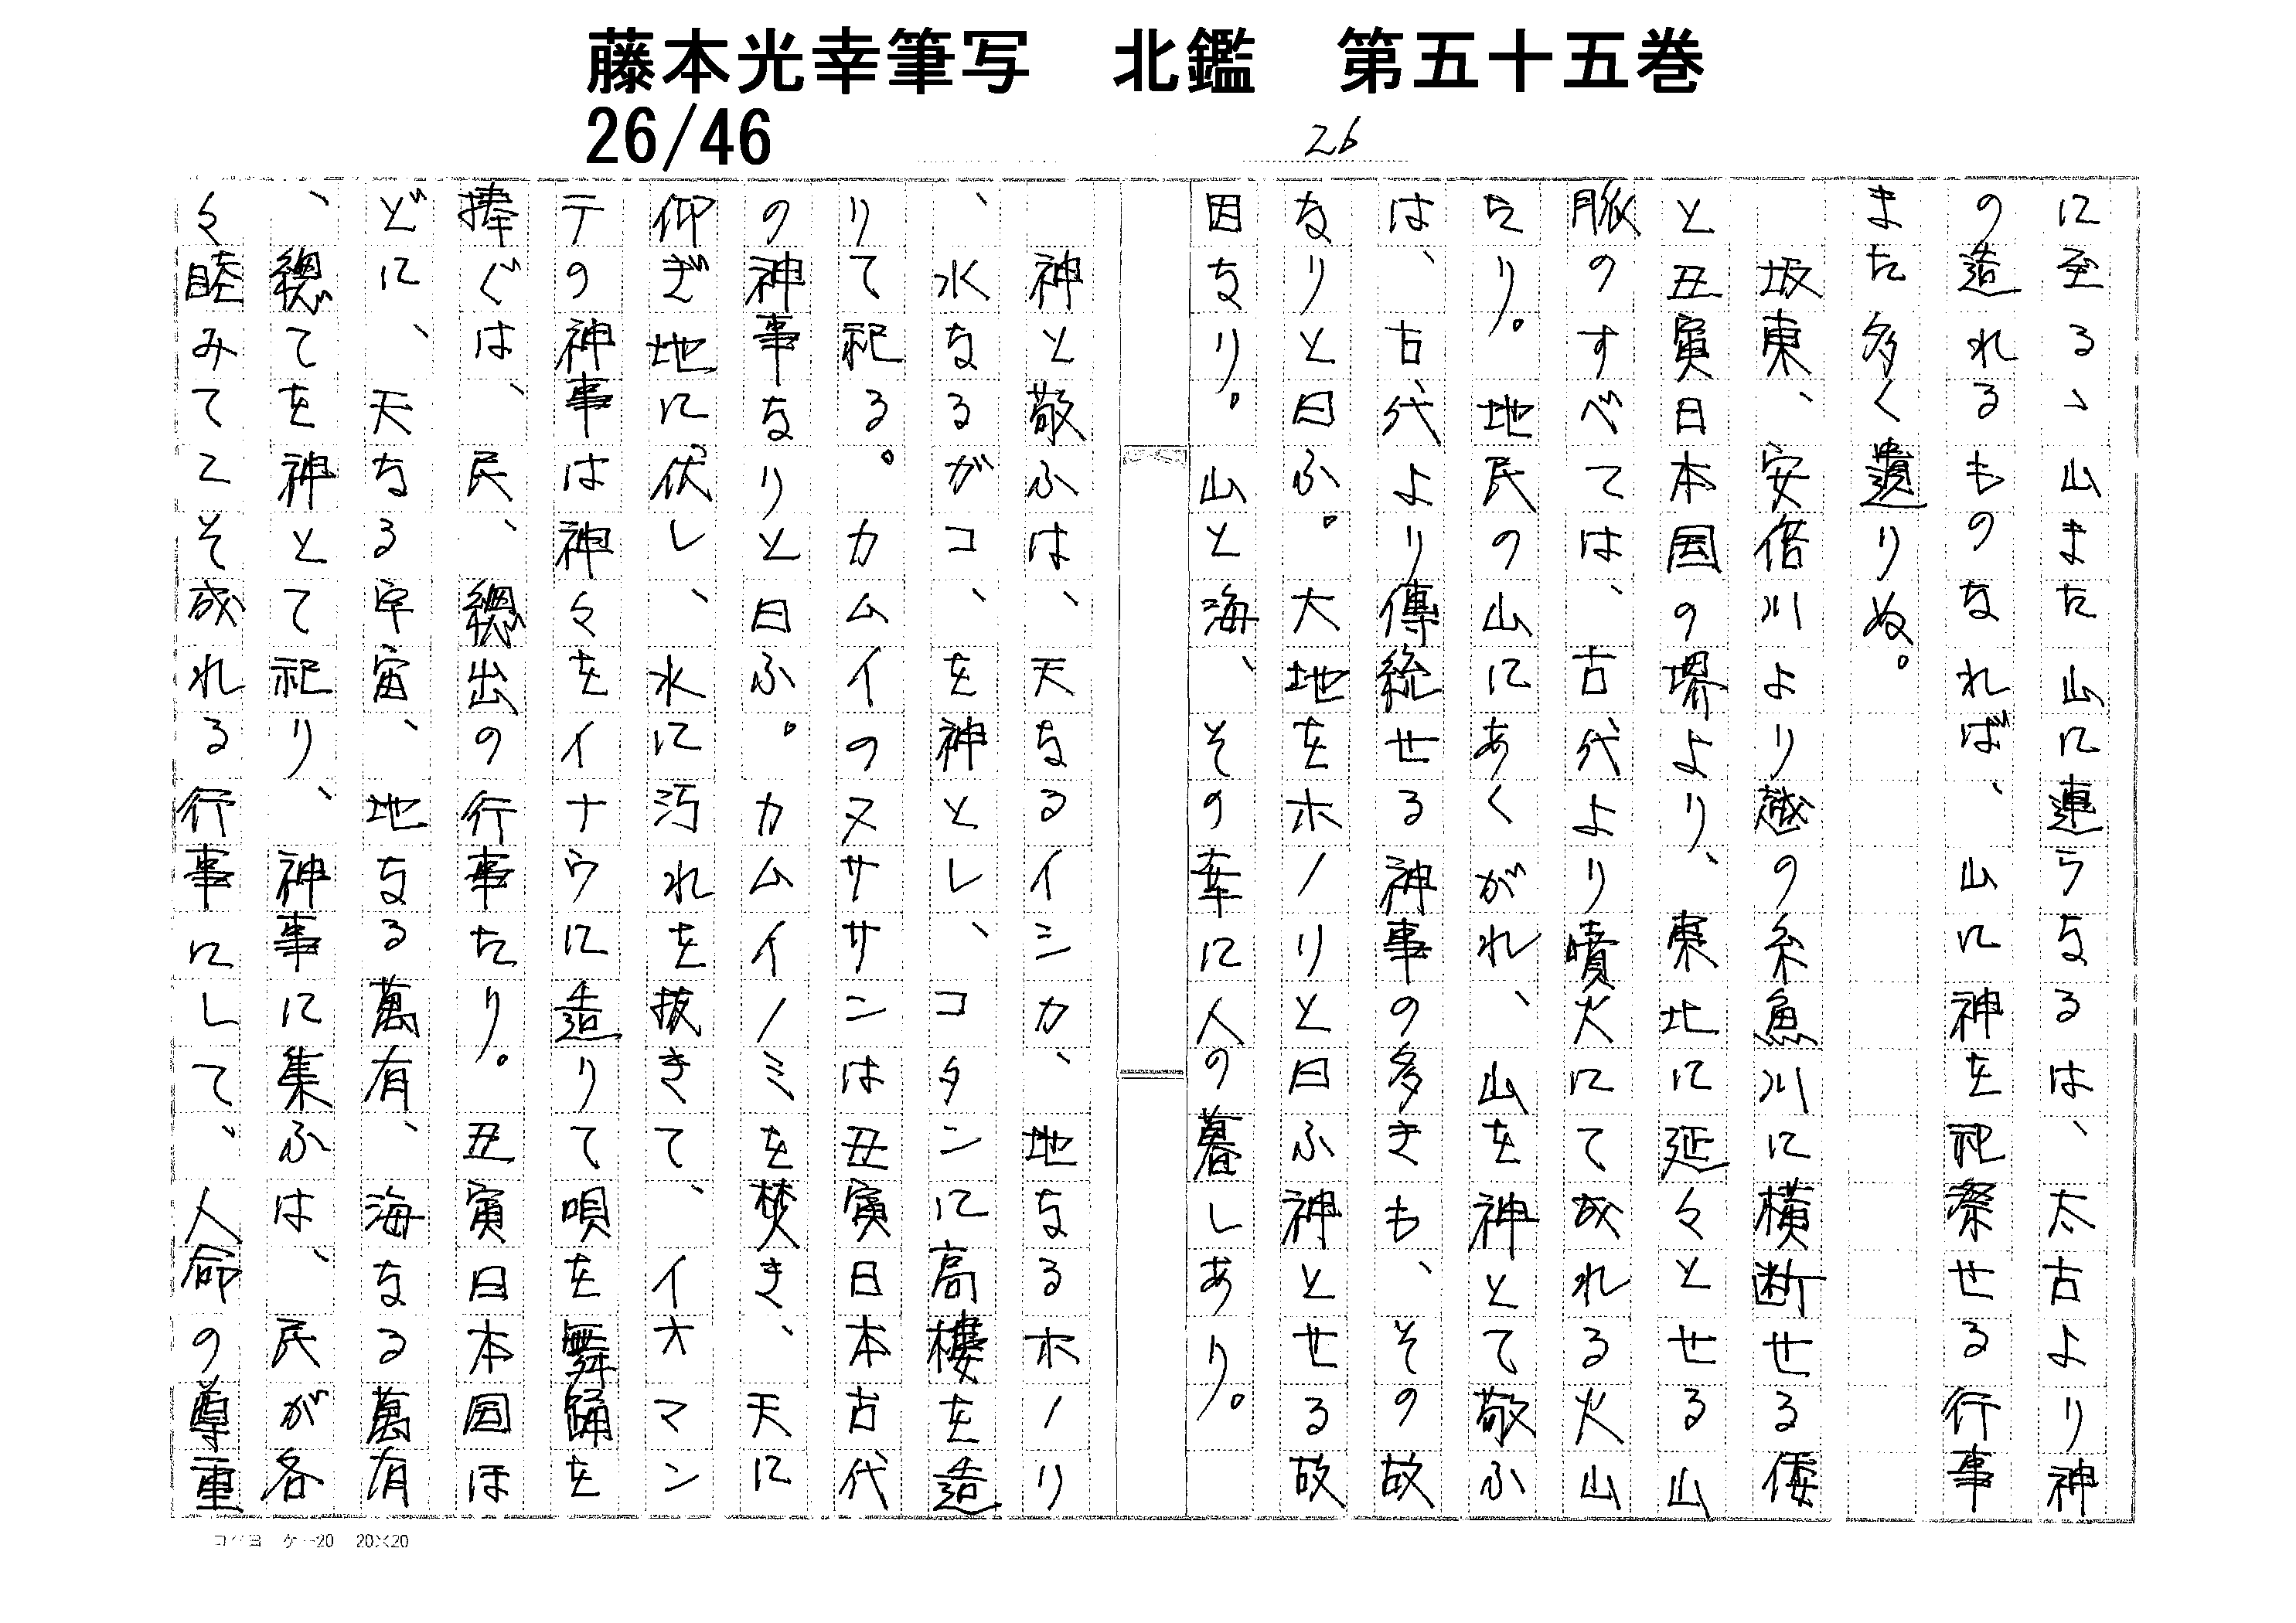 藤本光幸筆写　北鑑　第五十五巻
26/46
26
に至る、山また山に連らなるは、太古より神
の造れるものなれば、山に神を祀祭せる行事
また多く遺りぬ。
坂東、安倍川より越の糸魚川に横断せる倭
と丑寅日本国の堺より、東北に延々とせる山
脈のすべては、古代より噴火にて成れる火山
なり。地民の山にあくがれ、山を神とて敬ふ
は、古代より傳統せる神事の多きも、その故
なりと曰ふ。大地をホノリと曰ふ神とせる故
因なり。山と海、その幸に人の暮しあり。
神と敬ふは、天なるイシカ、地なるホノリ
、水なるガコ、を神とし、コタンに高樓を造
りて祀る。カムイのヌササンは丑寅日本古代
の神事なりと曰ふ。カムイノミを焚き、天に
仰ぎ地に伏し、水に汚れを抜きて、イオマン
テの神事は神々をイナウに造りて唄を舞踊を
捧ぐは、民、總出の行事たり。丑寅日本国ほ
どに、天なる宇宙、地なる萬有、海なる萬有
、總てを神とて祀り、神事に集ふは、民が各
々睦みてこそ成れる行事にして、人命の尊重
コクヨ　ケー20　20×20